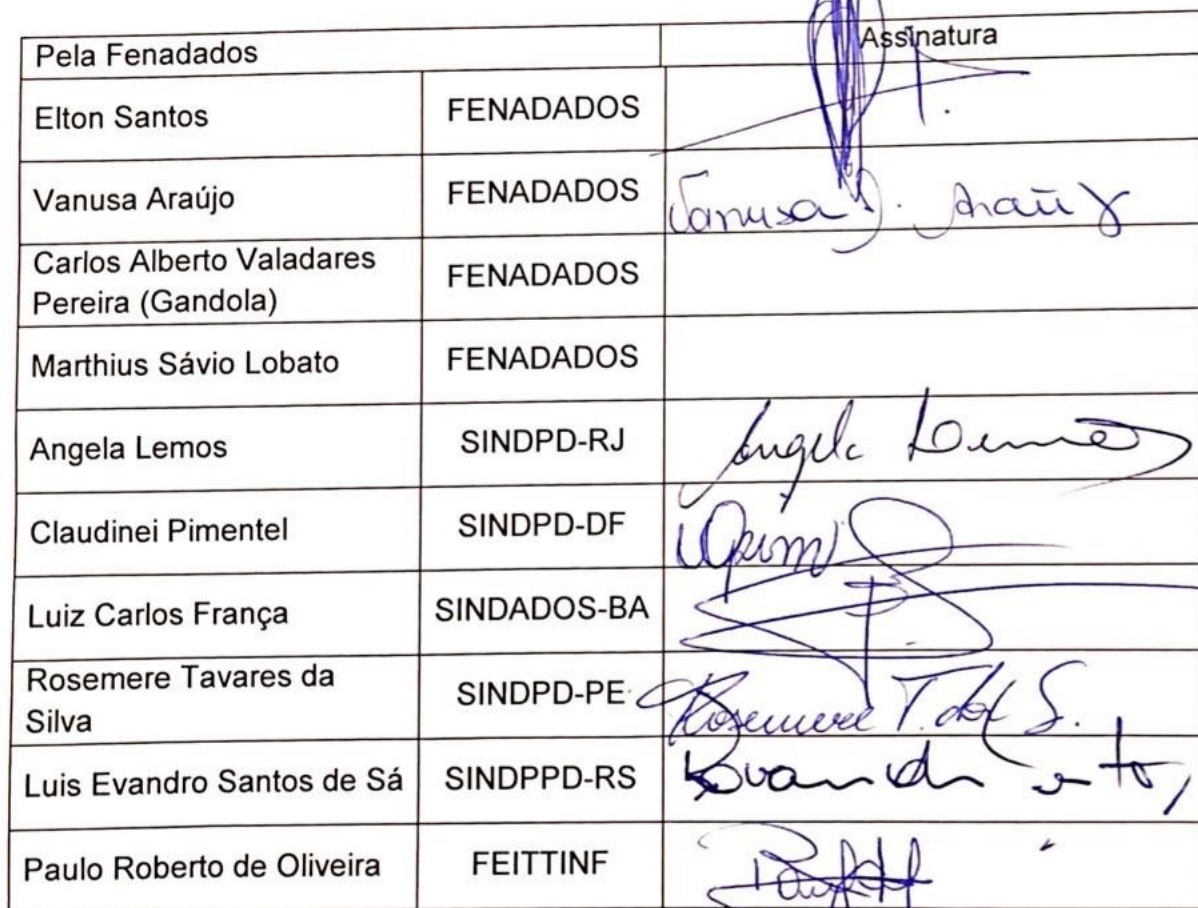 Pela Fenadados Assinatura
Elton Santos FENADADOS
Vanusa Araújo FENADADOS Vanusa D. Araúj
Carlos Alberto Valadares
Pereira (Gandola) FENADADOS
Marthius Sávio Lobato FENADADOS
Angela Lemos SINDPD-RJ Angela Lemos
Claudinei Pimentel SINDPD-DF
Luiz Carlos França SINDADOS-BA
Rosemere Tavares da
Silva SINDPD-PE Rosemere T. da S.
Luis Evandro Santos de Sá SINDPPD-RS
Paulo Roberto de Oliveira FEITTINF